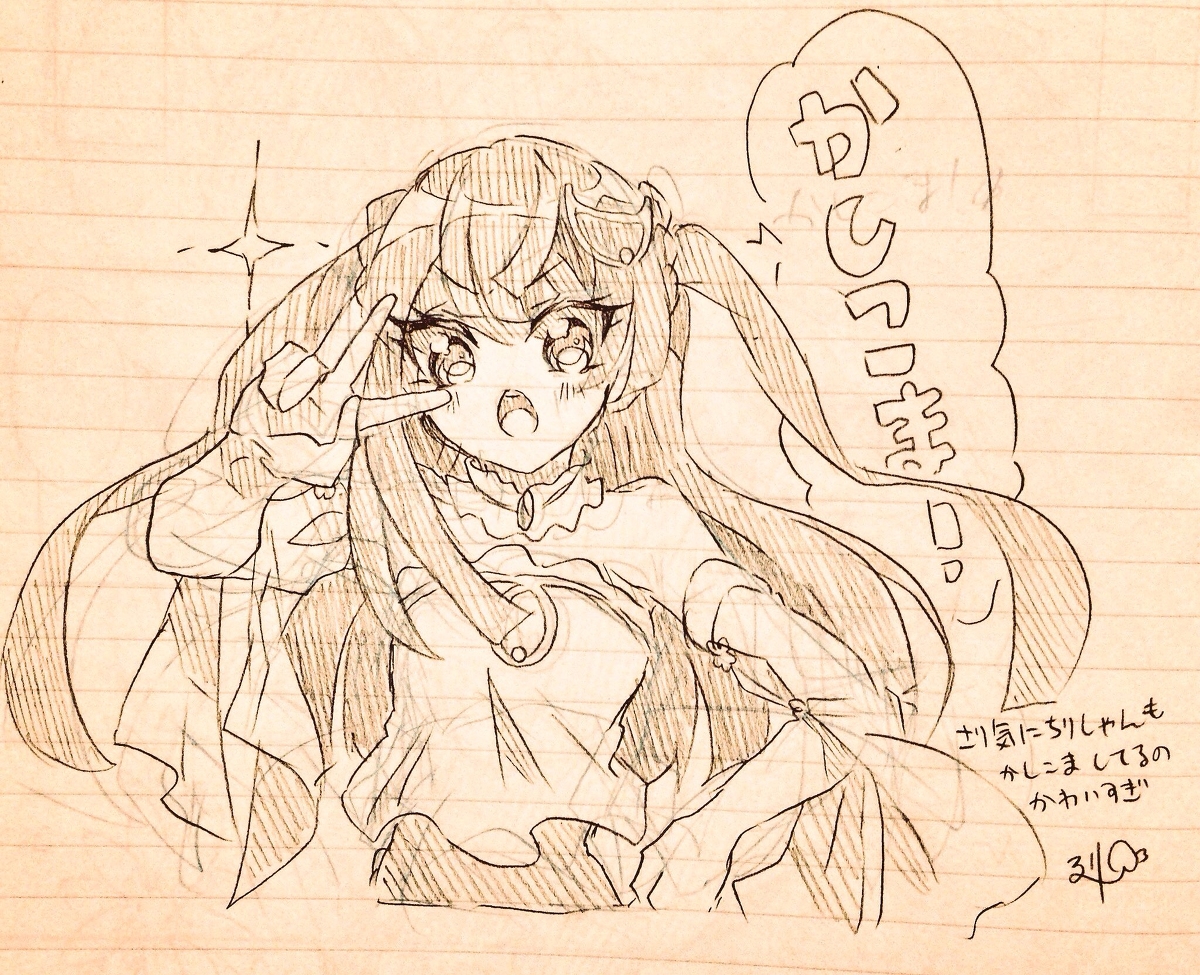 かしこま！
さり気にちりしゃんも
かしこましてるの
かわいすぎ